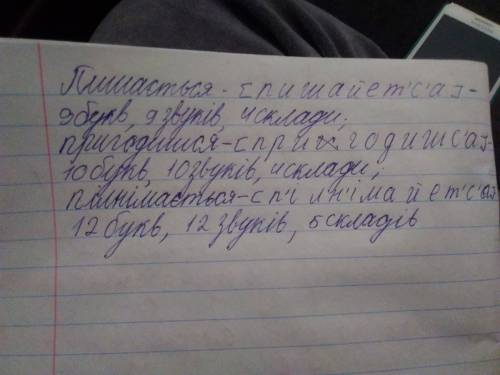 Пишається - [пишайет'с'а]-
9букв, 9 звуків, 4 склади;
пригодишся-[пригодишс'а]-
10букв, 10звуків, 4склади;
піднімається-[п'і н'імайет'с'а]
12букв, 12 звуків, 5 складів